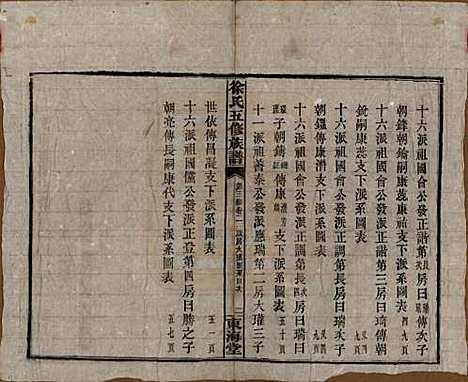 十六派祖國會公發派正諧第長房曰瑞傳次子
朝鋒朝錀嗣康蕊康發支下派系圖表
十六派祖國會公發派正諧第三房曰琦傳朝
銳嗣康蕊支下派系圖表
十六派祖國會公發派正調第長房曰瑞次子
朝鑑傳康濟支下派系圖表 九頁
十六派祖國會公發派正調第長房曰瑞
子朝鑄傳康支下派系圖表 五十頁
十一派祖善泰公發派應瑞第二房大璀三子
徐氏五修族譜
東海堂
世依傳昌凝支下派系圖表 五一頁
十六派祖國會公發派正登第四房曰勝之子
朝亮傳長嗣康代支下派系圖表 五七頁